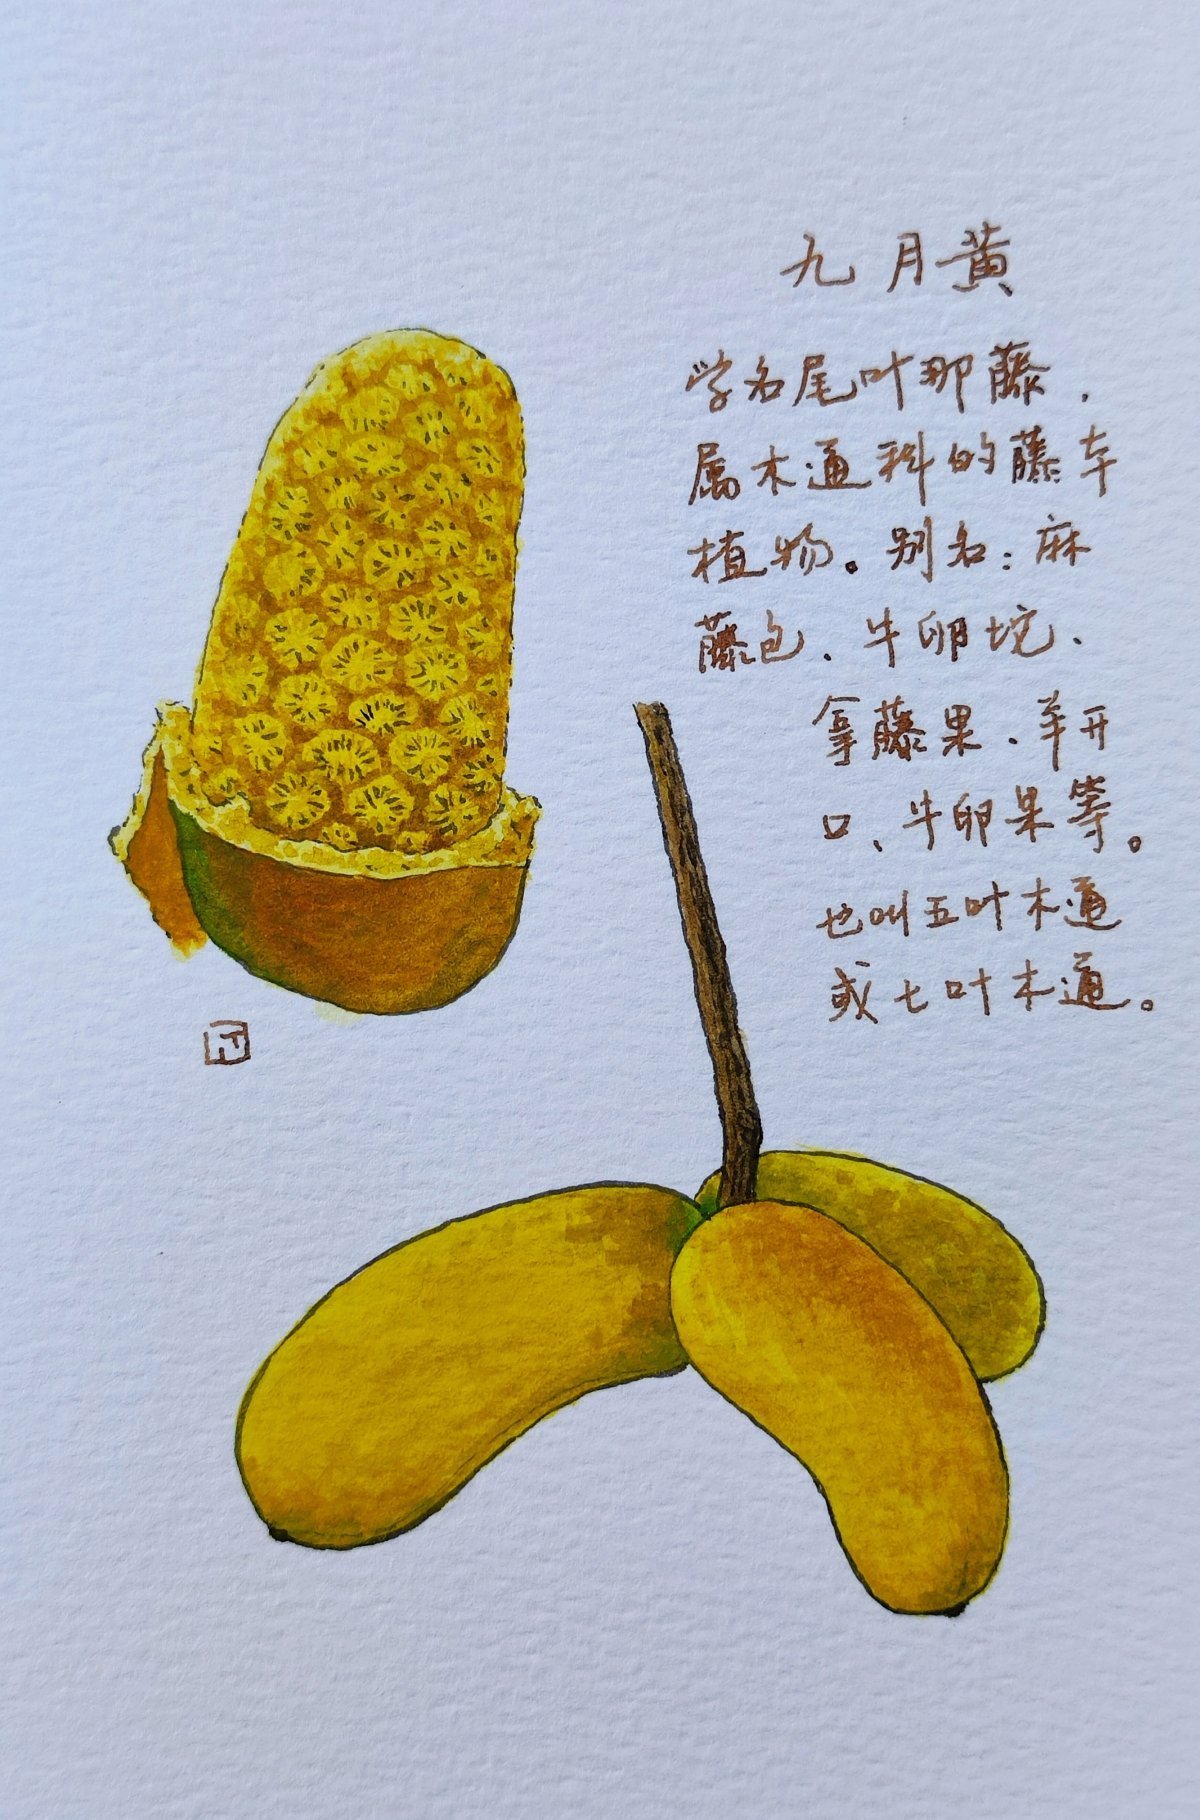 九月黄
学名尾叶那藤，
属木通科的藤本
植物。别名：麻
藤包、牛卵坨、
拿藤果、羊开
口、牛卵果等。
也叫五叶木通
或七叶木通。